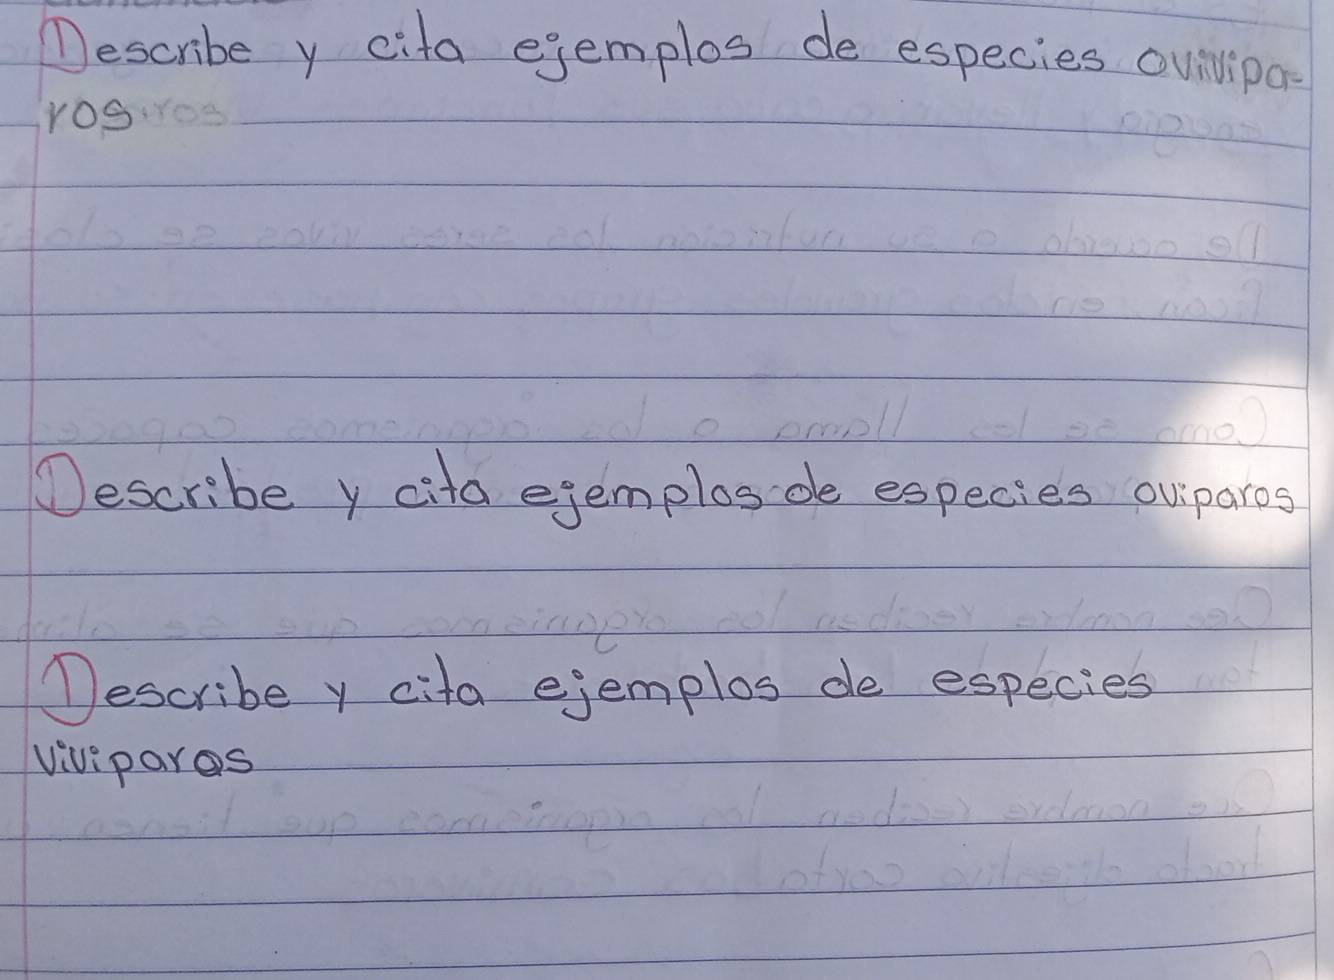 Describe y cita ejemplos de especies ovivipa-
ros
Describe y cita ejemplos de especies oviparos
Describe y cita ejemplos de especies
viviparos